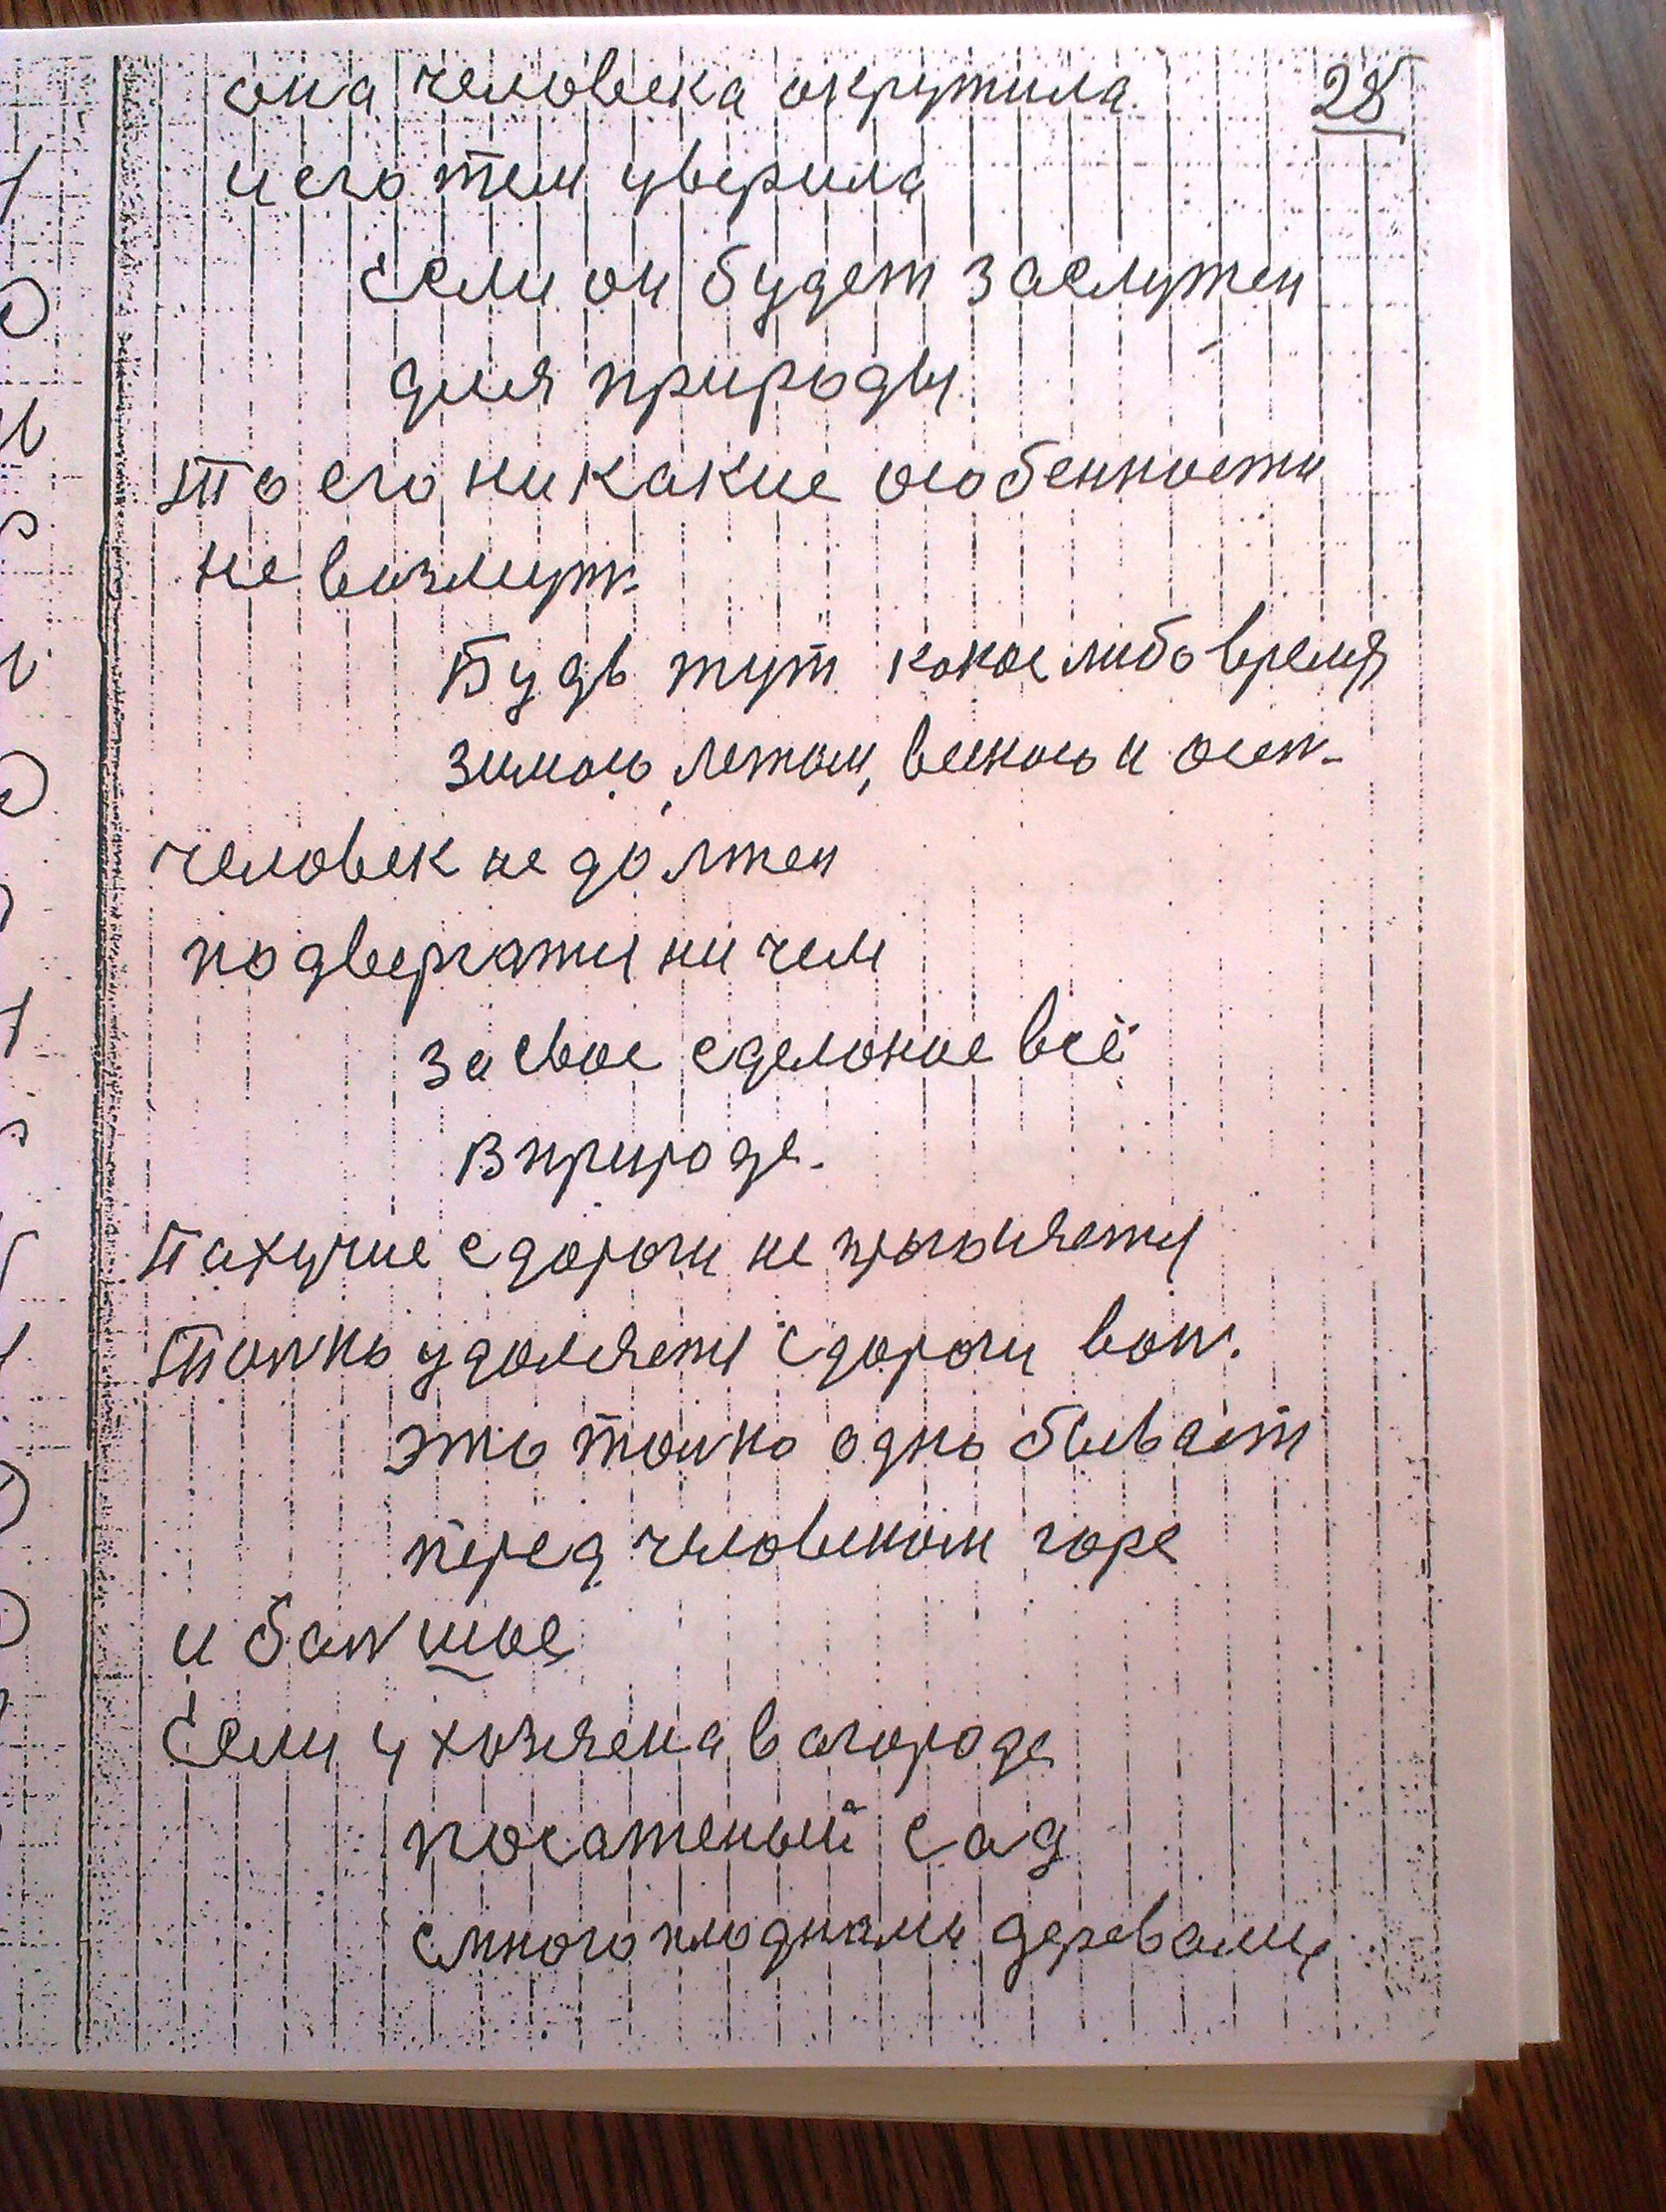 28
она человека окружила
и его тем уверила
Если он будет заслужен
для природы
то его никакие особенности
не возмут.
Будь тут какое либо время
зимою, летом, весною и осен.
человек не должен
подвергатся ни чем
за свое сделоное всё
в природе.
Пахучие с дороги не прогоняется
только удоляется с дороги вон.
это только одно бывает
перед человеком горе
и большое
Если у хозяена в огороде
посаженый сад
с многоплодными деревами,